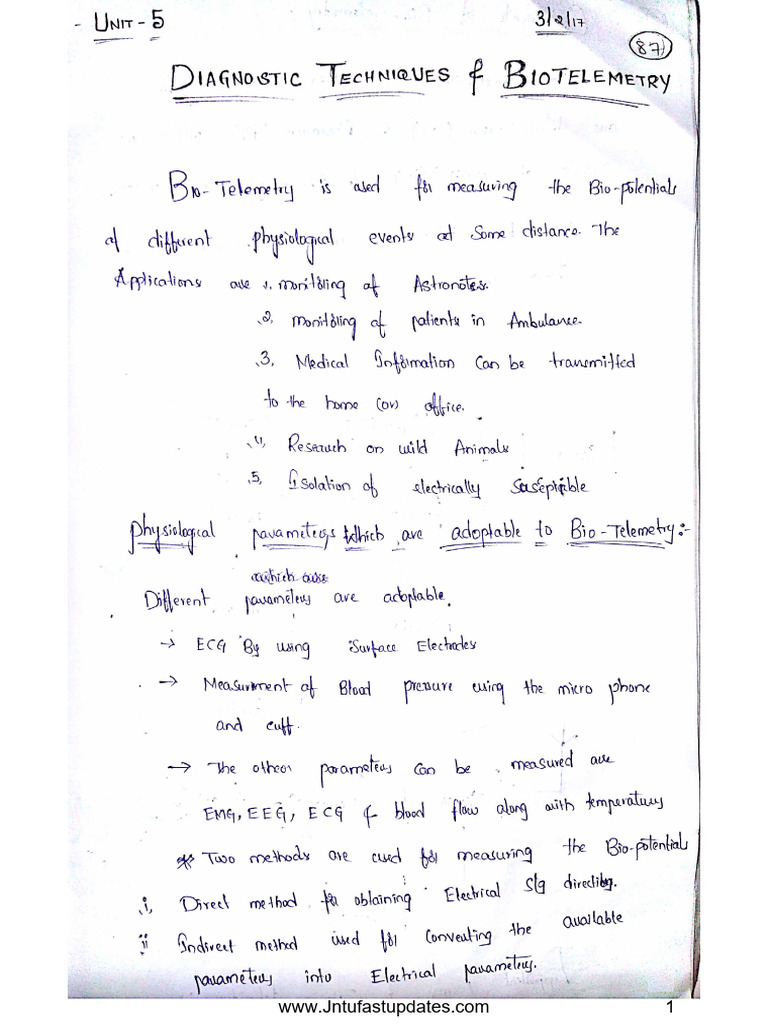 - UNIT - 5
3/2/17
87
DIAGNOSTIC TECHNIQUES & BIOTELEMETRY
Bio-Telemetry is used for measuring the Bio-potentials
of different physiological events at Some distance. The
Applications are 1. monitoring of Astronotes.
2. monitoring of patients in Ambulance.
3, Medical Information can be transmitted
to the home (or) office.
4, Research on wild Animals
5, Isolation of electrically Suseptible
Physiological parameters which are adoptable to Bio-Telemetry:-
which are
Different parameters are adoptable.
→ ECG By using Surface Electrodes
→ Measurment of Blood pressure using the micro phone
and cuff.
→ The other parameters can be measured are
EMG, EEG, ECG & blood flow along with temperatures
* Two methods are used for measuring the Bio-potentials
i, Direct method for obtaining Electrical Slg directly.
ii Indirect method used for converting the available
parameters into Electrical parameters.
www.Jntufastupdates.com 1